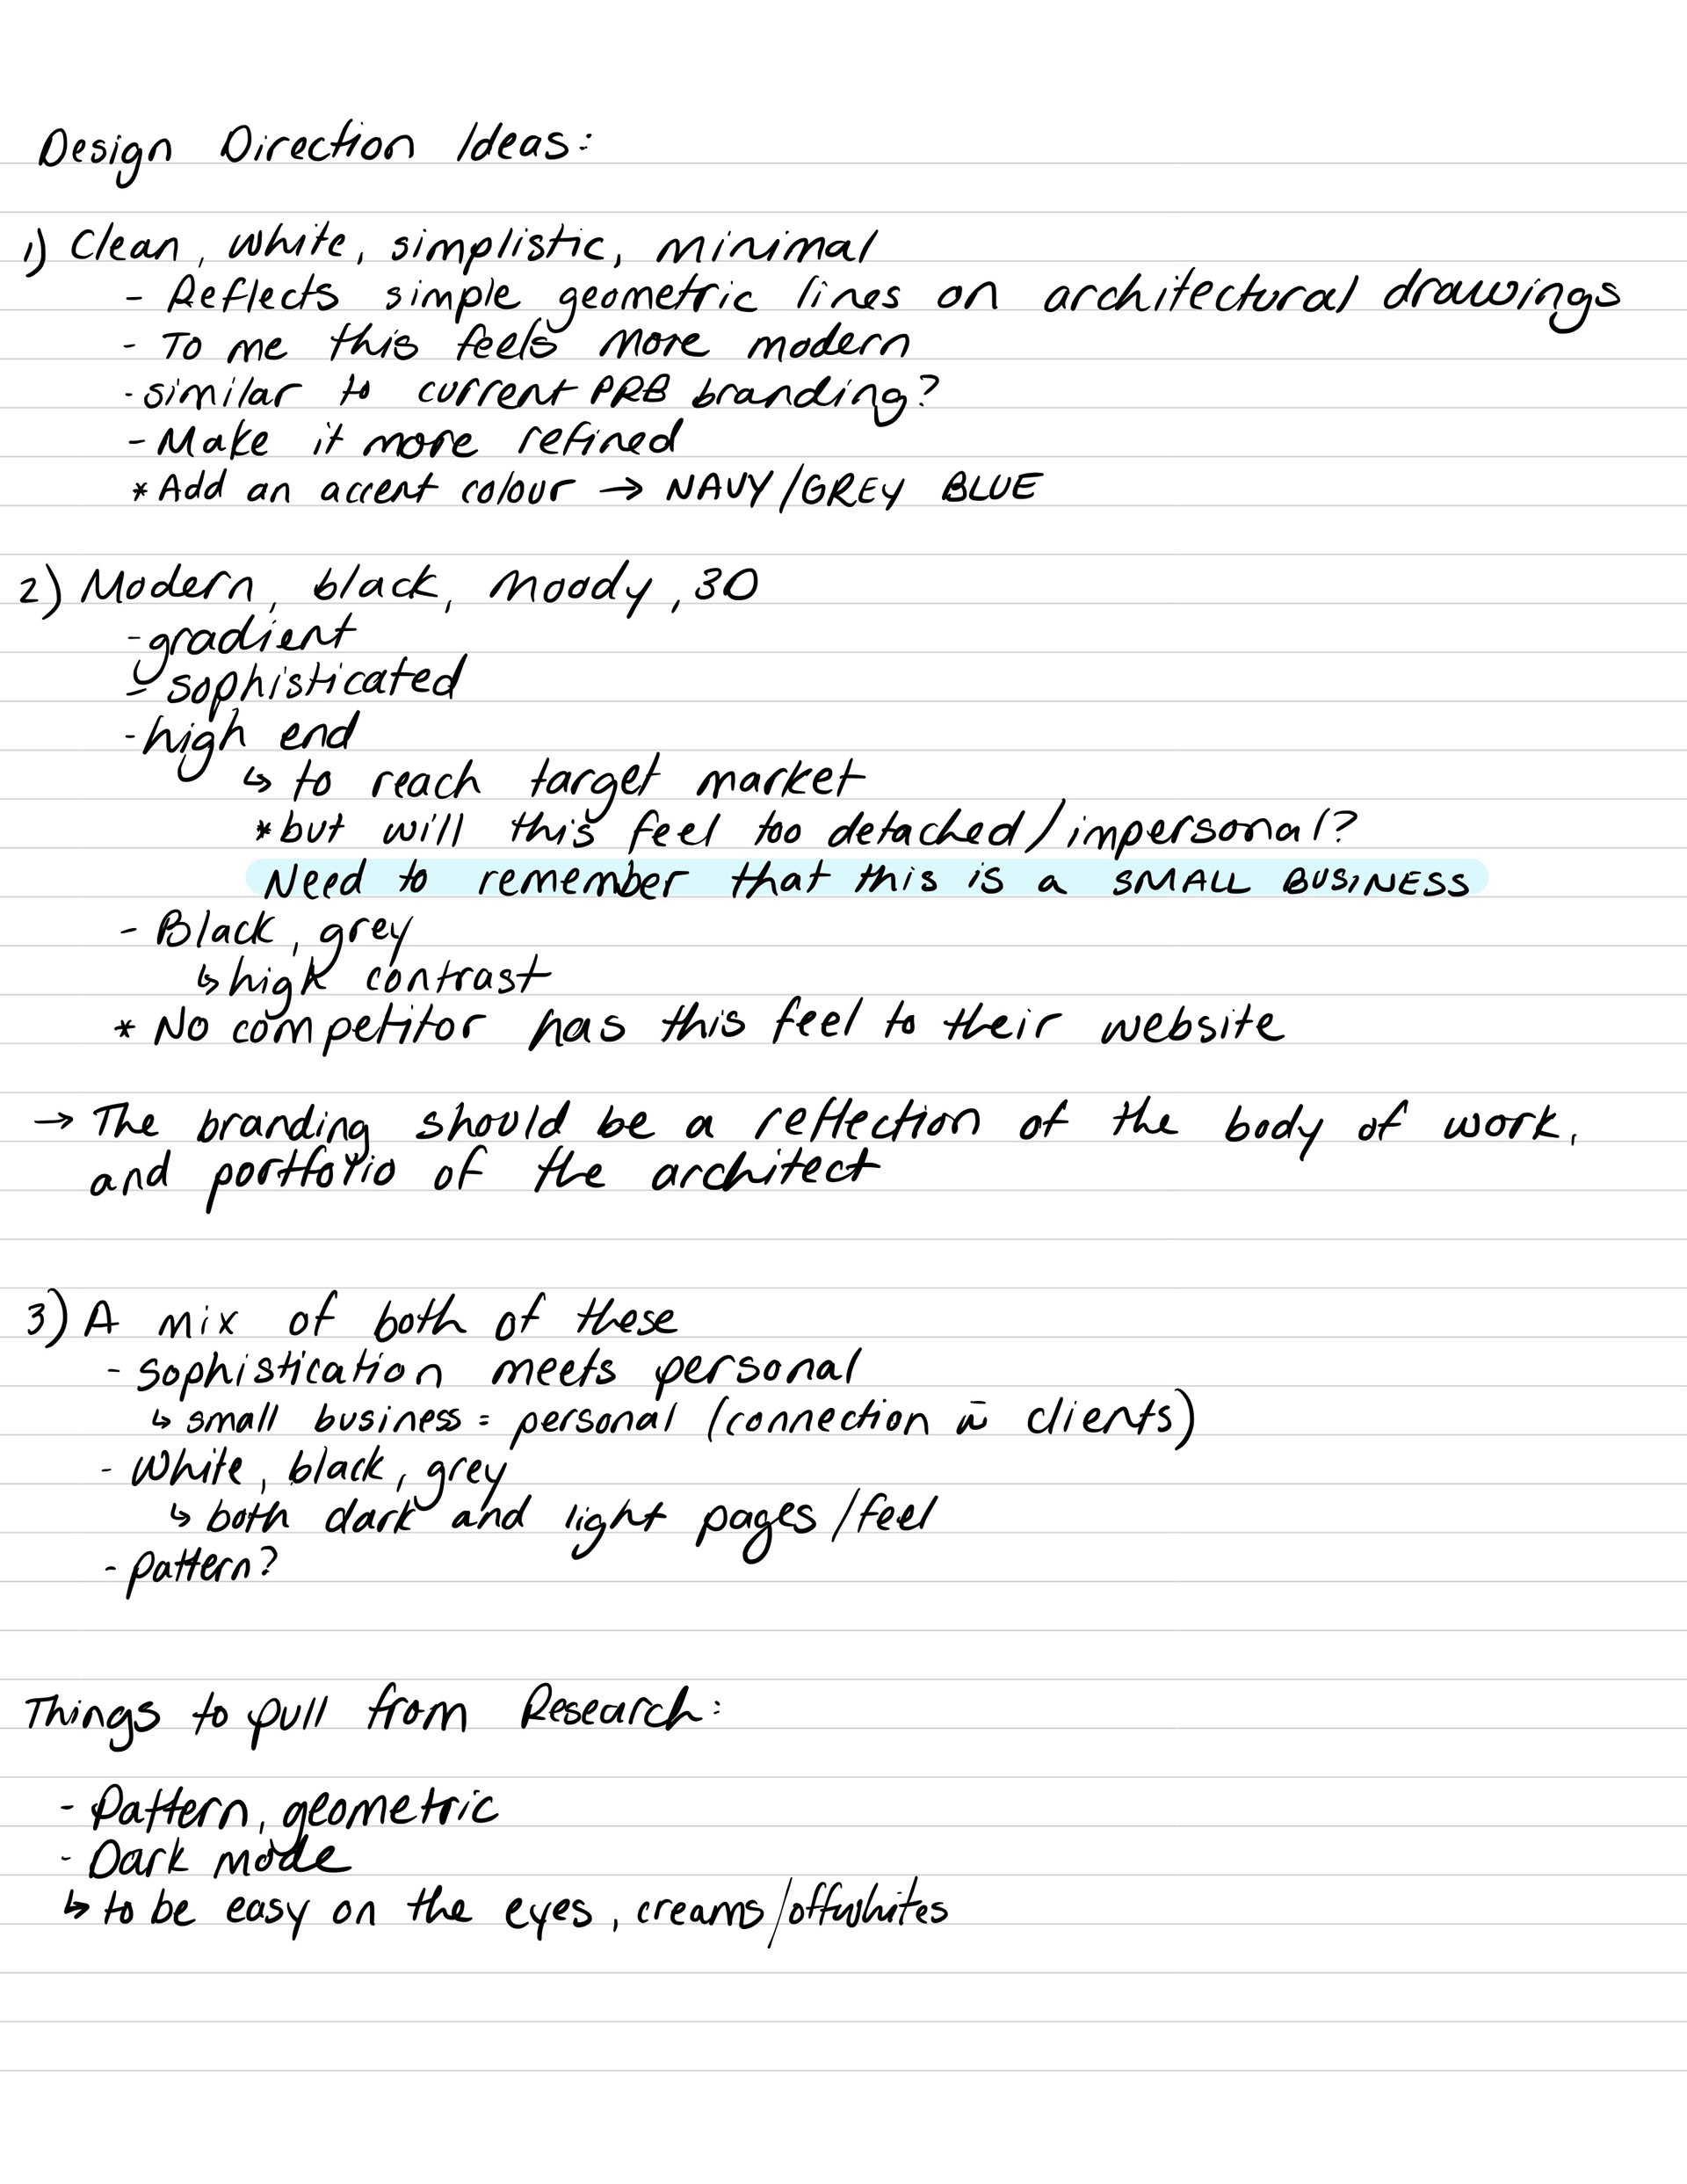 Design Direction Ideas:
1) Clean, white, simplistic, minimal
- Reflects simple geometric lines on architectural drawings
- To me this feels more modern
- similar to current PRB branding?
- Make it more refined
* Add an accent colour → NAVY/GREY BLUE
2) Modern, black, moody, 3D
- gradient
- sophisticated
- high end
↳ to reach target market
* but will this feel too detached/impersonal?
Need to remember that this is a SMALL BUSINESS
- Black, grey
↳ high contrast
* No competitor has this feel to their website
→ The branding should be a reflection of the body of work,
and portfolio of the architect
3) A mix of both of these
- sophistication meets personal
↳ small business = personal (connection w̄ clients)
- white, black, grey
↳ both dark and light pages/feel
- pattern?
Things to pull from Research:
- Pattern, geometric
- Dark mode
↳ to be easy on the eyes, creams/offwhites